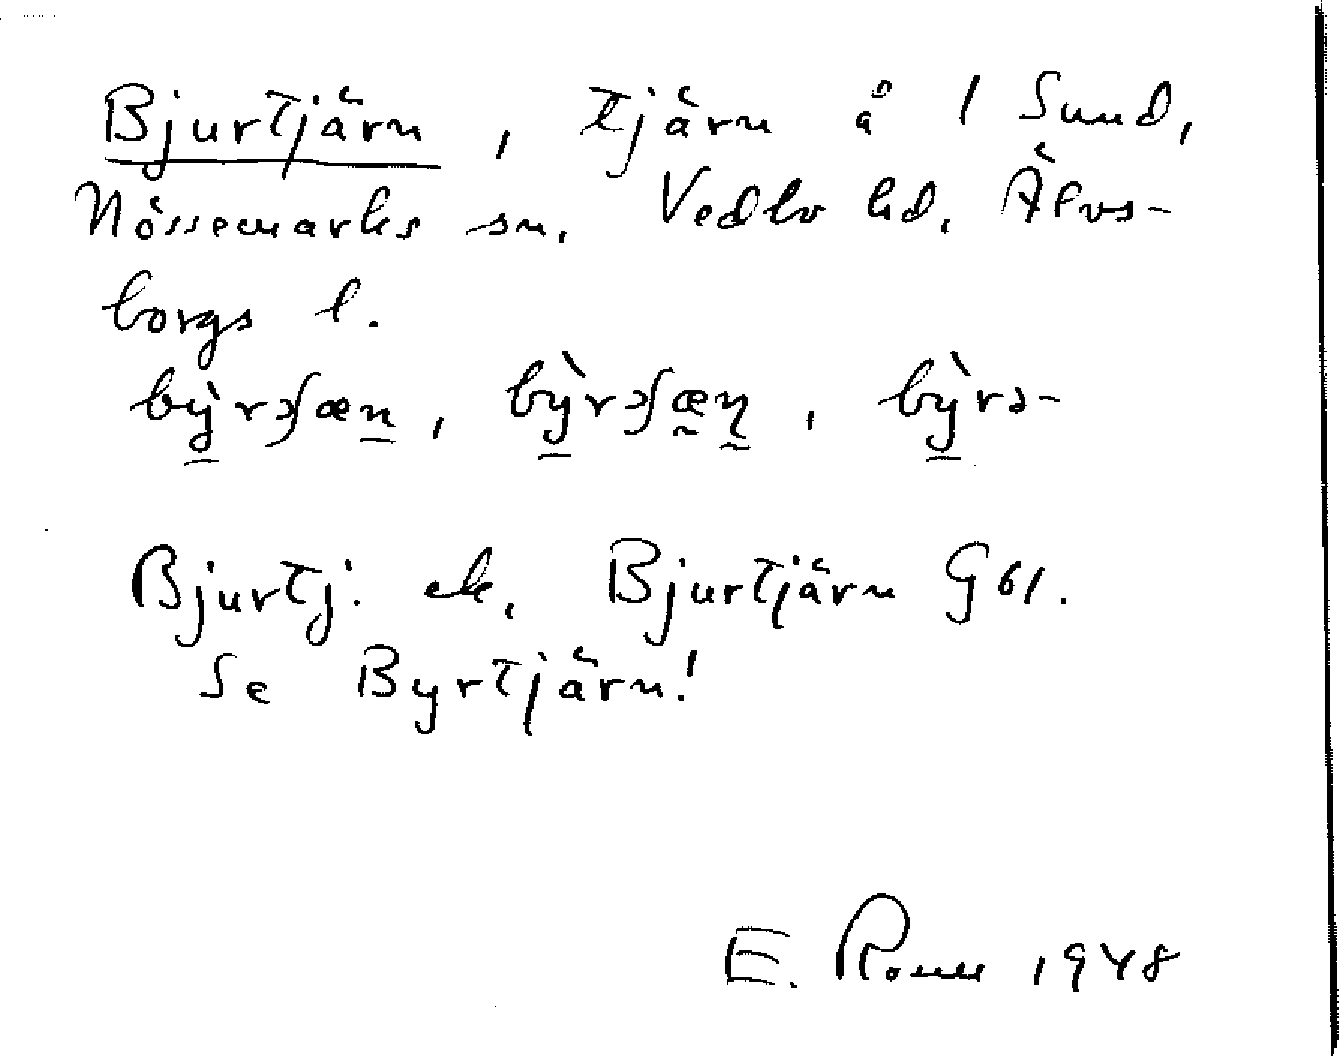 Bjurtjärn, tjärn å 1 Sund,
Nössemarks sn, Vedbo hd, Älvs-
borgs l.
bỳ̠rəʃæn̠, bỳ̠rəʃæ̰ṇ, bỳ̠rə-
Bjurtj. ek, Bjurtjärn G61.
Se Byrtjärn!
E. Rouu 1948